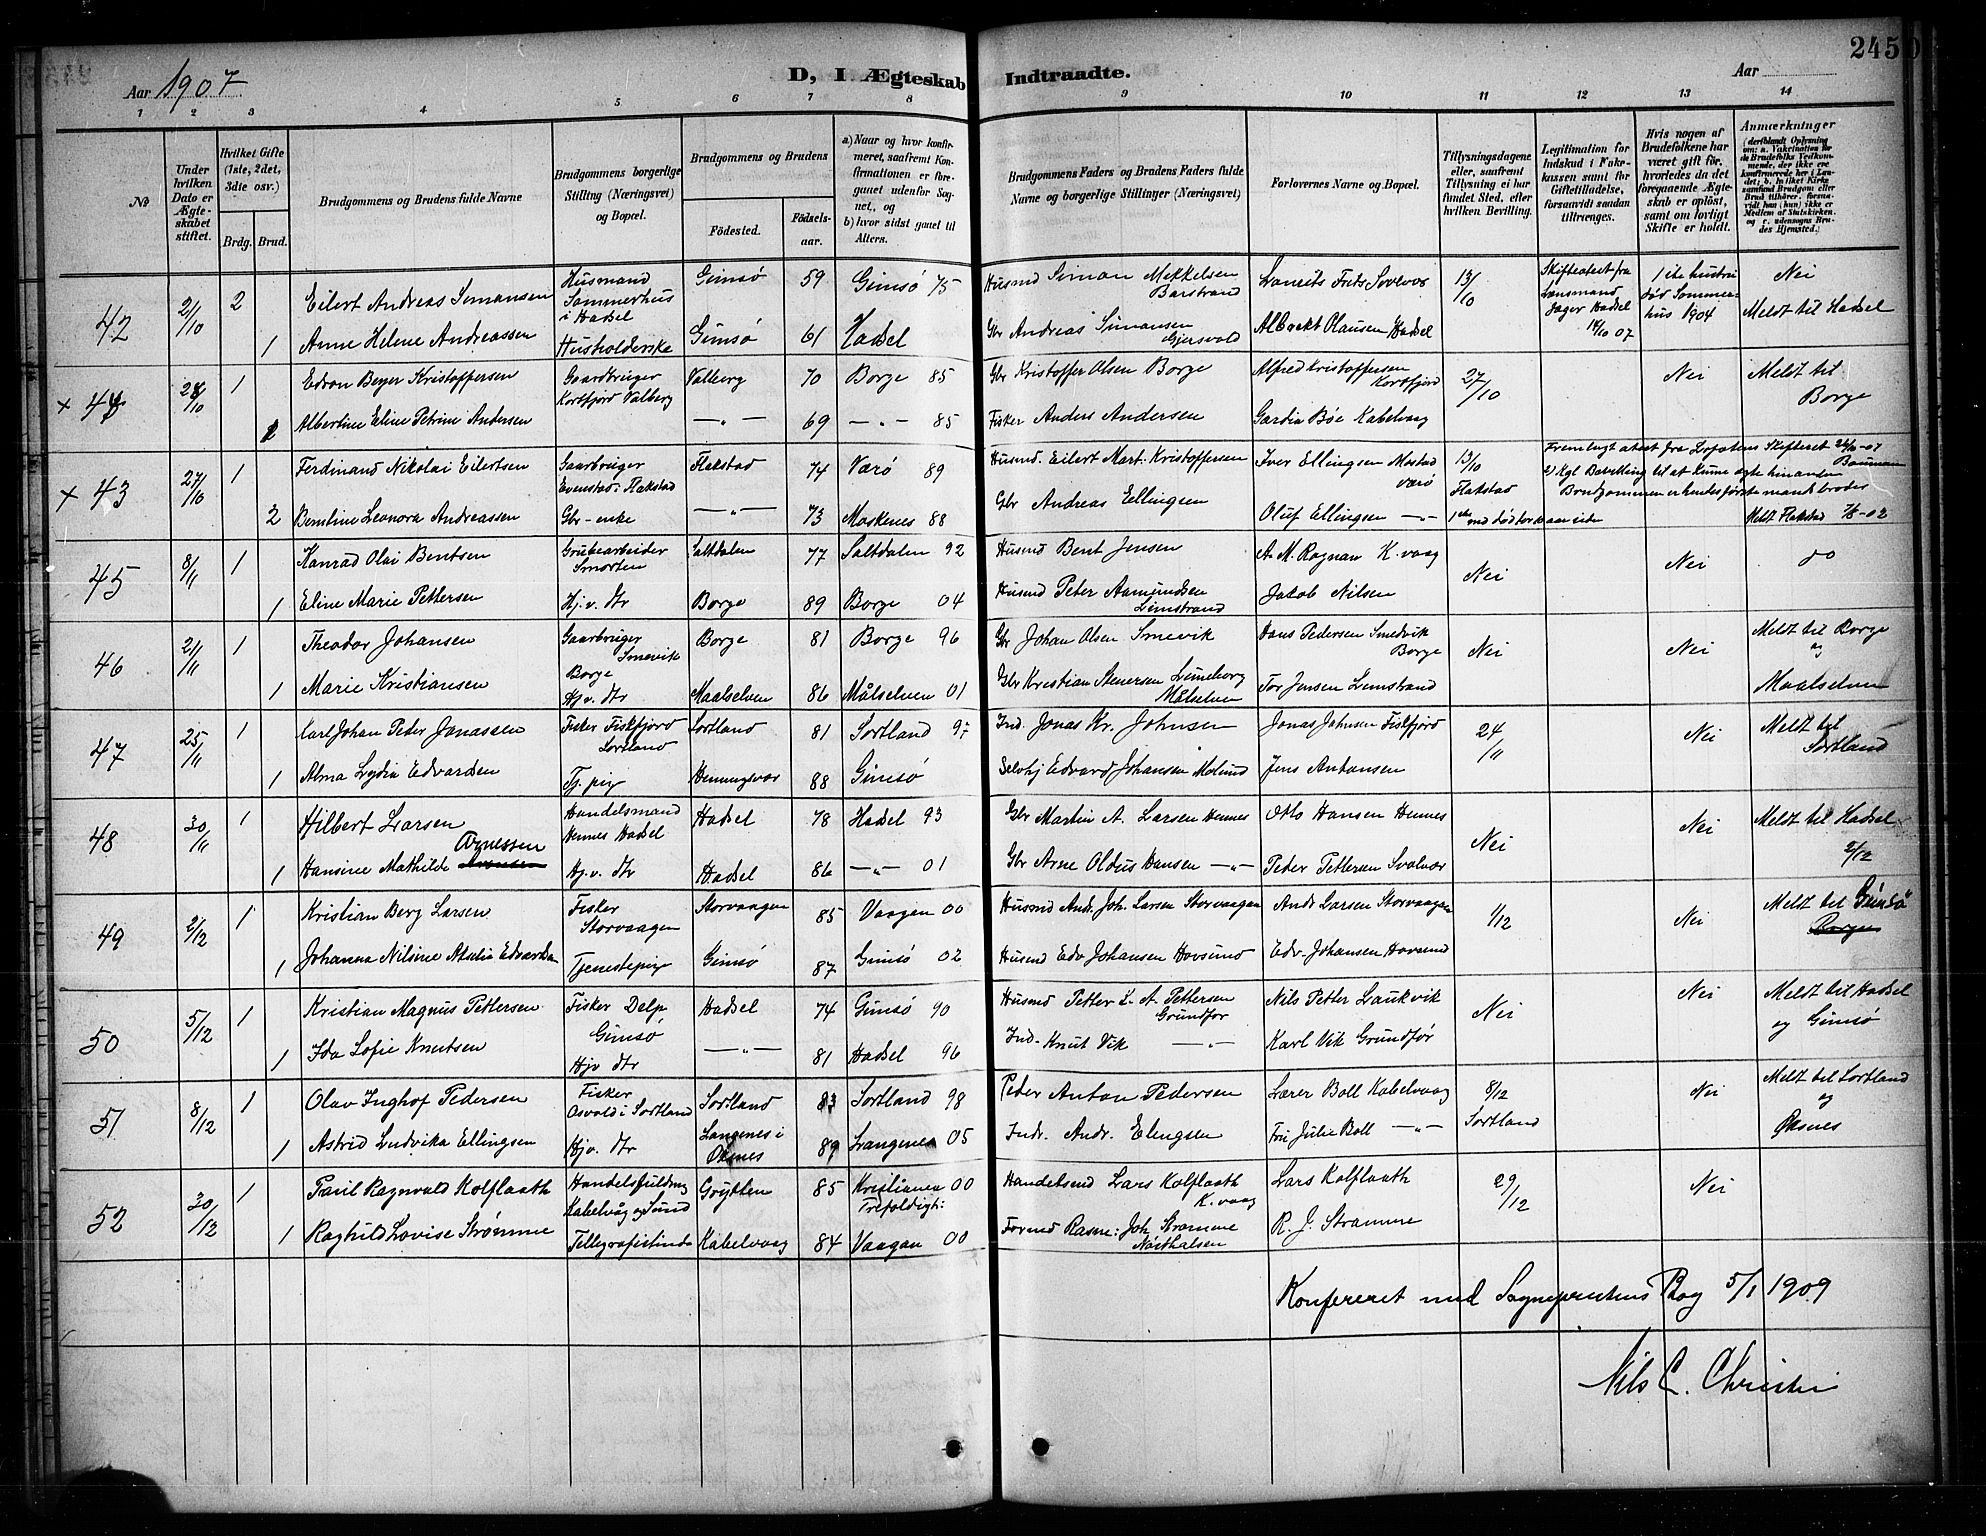 245
Aar 1907
D, I. Ægteskab Indtraadte.
Aar
1 2 3 4 5 6 7 8 9 10 11 12 13 14
No
Under hvilken Dato er Ægteskabet stiftet.
Hvilket Gifte (1ste, 2det, 3die osv.)
Brdg. Brud.
Brudgommens og Brudens fulde Navne
Brudgommens borgerlige Stilling (Næringsvei) og Bopæl.
Brudgommens og Brudens
Födested.
Födsels-aar.
a) Naar og hvor konfirmeret, saafremt Konfirmationen er foregaaet udenfor Sognet, og
b) hvor sidst gaaet til Alters.
Brudgommens Faders og Brudens Faders fulde Navne og borgerlige Stillinger (Næringsvei)
Forlovernes Navne og Bopæl.
Tillysningsdagene eller, saafremt Tillysning ei har fundet Sted, efter hvilken Bevilling.
Legitimation for Indskud i Fakkassen samt for Giftetilladelse, forsaavidt saadan tiltrænges.
Hvis nogen af Brudefolkene har været gift för, hvorledes da det foregaaende Ægteskab er oplöst, samt om lovligt Skifte er holdt.
Anmærkninger
42 2/10 2 Eilert Andreas Simonsen Husmand Sommerhus i Hadsel Gimsö 59 Gimsö 75 Husmd Simon Mekkelsen Barstrand 13/10 Skifteatest fra Lensmand Jager Hadsel 14/10 07 1ste hustru död Sommerhus 1904 Nei Meldt til Hadsel
1 Anne Helene Andreassen Husholderske Gimsö 61 Hadsel Gbr Andreas Simonsen Gjersvold Albrekt Olausen Hadsel
x 44 28/10 1 Edvon Beyer Kristoffersen Gaardbruger Kortfjord Valberg Valberg 70 Borge 85 Gbr Kristoffer Olsen Borge Alfred Kristoffersen Kortfjord 27/10 Nei Meldt til Borge
Albertine Eline Petrine Andersen —"— 69 —"— 85 Fisker Anders Andersen Gardin Böe Kabelvaag
x 43 27/10 1 Ferdinand Nikolai Eilertsen Gaarbruger Evenstad i Flakstad Flakstad 74 Værö 89 Husmd. Eilert Mart. Kristoffersen Iver Ellingsen Mostad Værö 13/10 Flakstad Fremlagt atest fra Lofotens Skifteret 26/10-07
2) Kgl Bevilling til at kunne ægte hinanden
Brudgommen er hendes förste mands broder
2 Berntine Leonora Andreassen Gbr-enke —"— 73 Moskenes 88 Gbr Andreas Ellingsen Oluf Ellingsen —"— Meldt Flakstad
45 8/11 1 Konrad Olai Bentsen Grubearbeider Smorten Saltdalen 77 Saltdalen 92 Husmd Bent Jensen A. M. Rognan K.vaag Nei Nei do
1 Eline Marie Pettersen Hj.v. dtr Borge 89 Borge 04 Husmd Peter Aamundsen Limstrand Jakob Nilsen
46 2/11 1 Theodor Johansen Gaarbruger Smevik Borge Borge 81 Borge 96 Gbr Johan Olsen Smevik Hans Pedersen Smedvik Borge Nei Nei Meldt til Borge og Maalselven
1 Marie Kristiansen Hj.v. dtr Maalselven 86 Målselven 01 Gbr Kristian Stenersen Luneborg Målselven Tor Jensen Limstrand
47 25/11 1 Karl Johan Peder Jonassen Fisker Fiskfjord Sortland Sortland 81 Sortland 97 Ind. Jonas Kr. Johnsen Jonas Johnsen Fiskfjord 24/11 Nei Meldt til Sortland
1 Alma Lydia Edvardsen Tj. pig Henningsvær 88 Gimsö Selvhj Edvard Johansen Molund Jens Antonsen
48 30/11 1 Hilbert Larsen Handelsmand Hennes Hadsel Hadsel 78 Hadsel 93 Gbr Martin A. Larsen Hennes Otto Hansen Hennes Nei Nei Meldt til Hadsel 2/12
1 Hansine Mathilde Arnessen Hj.v. dtr Hadsel 86 —"— 01 Gbr Arne Oldus Hansen —"— Peder Pettersen Svolvær
49 2/12 1 Kristian Berg Larsen Fisker Storvaagen Storvaagen 85 Vaagan 00 Husmd Andr. Joh. Larsen Storvaagan Andr Larsen Storvaagan 1/12 Nei Meldt til Gimsö
1 Johanna Nilsine Atalia Edvardsen Tjenestepig Gimsö 87 Gimsö 02 Husmd Edv Johansen Hovsund Edv. Johansen Hovsund
50 5/12 1 Kristian Magnus Pettersen Fisker Delp Gimsö Hadsel 74 Gimsö 90 Husmd Petter L. A. Pettersen Grundfor Nils Petter Laukvik Nei Nei Meldt til Hadsel og Gimsö
1 Ida Sofie Knutsen Hjv dtr —"— 81 Hadsel 96 Ind. Knut Vik —"— Karl Vik Grundför
51 8/12 1 Olav Inghof Pedersen Fisker Osvold i Sortland Sortland 83 Sortland 98 Peder Anton Pedersen Lærer Boll Kabelvaag 8/12 Sortland Nei Meldt til Sortland og Öksnes
1 Astrid Ludvika Ellingsen Hjv. dtr Langenes i Öksnes 89 Langenes 05 Indr. Andr. Elingsen Fru Julie Boll —"—
52 30/12 1 Paul Ragnvald Kolflaath Handelsfuldmg Kabelvåg og Sund Grytten 85 Kristiania 00 Trefoldigh: Handelsmd Lars Kolflaath K.vaag Lars Kolflaath 29/12 Nei
1 Raghild Lovise Strömme Tellegrafistinde Kabelvaag 84 Vaagan 00 Formd Rasm: Joh. Strømme R. J. Strømme
Konfereret med Sogneprestens Bog 5/1 1909
Nils C. Christie